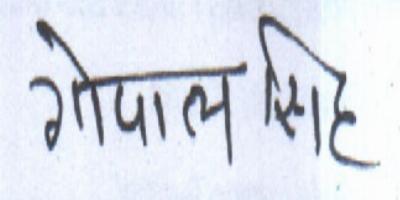 गोपाल सिंह